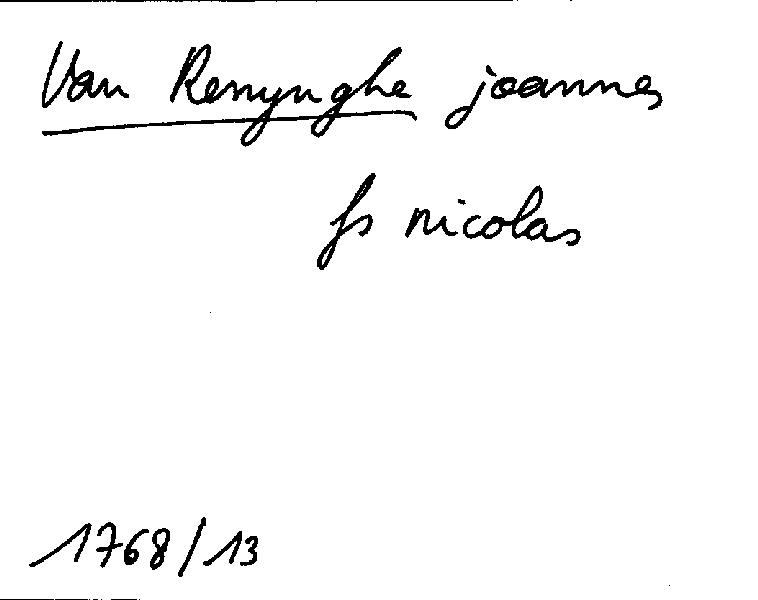 Van Renynghe joannes
fs nicolas
1768/13